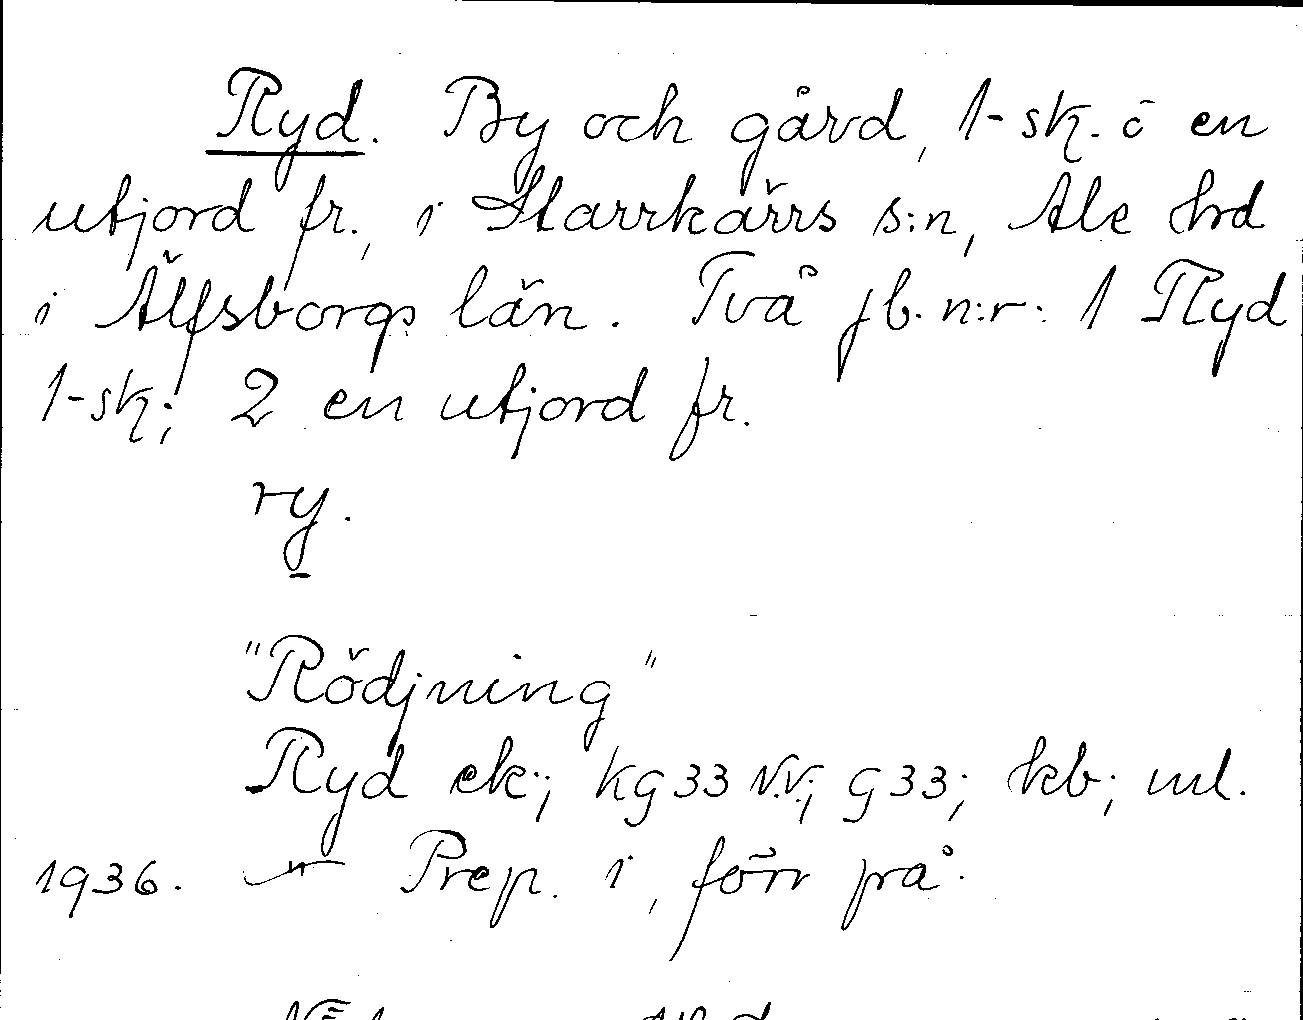 Ryd. By och gård, 1-sk. o en
utjord fr., i Starrkärrs s:n, Ale hrd
i Älfsborgs län. Två jb. n:r: 1 Ryd
1-sk; 2 en utjord fr.
ry.
"Rödjning"
Ryd ek.; kg 33 N.V.; G 33; kb; ml.
1936. — " — Prep. i, förr på.